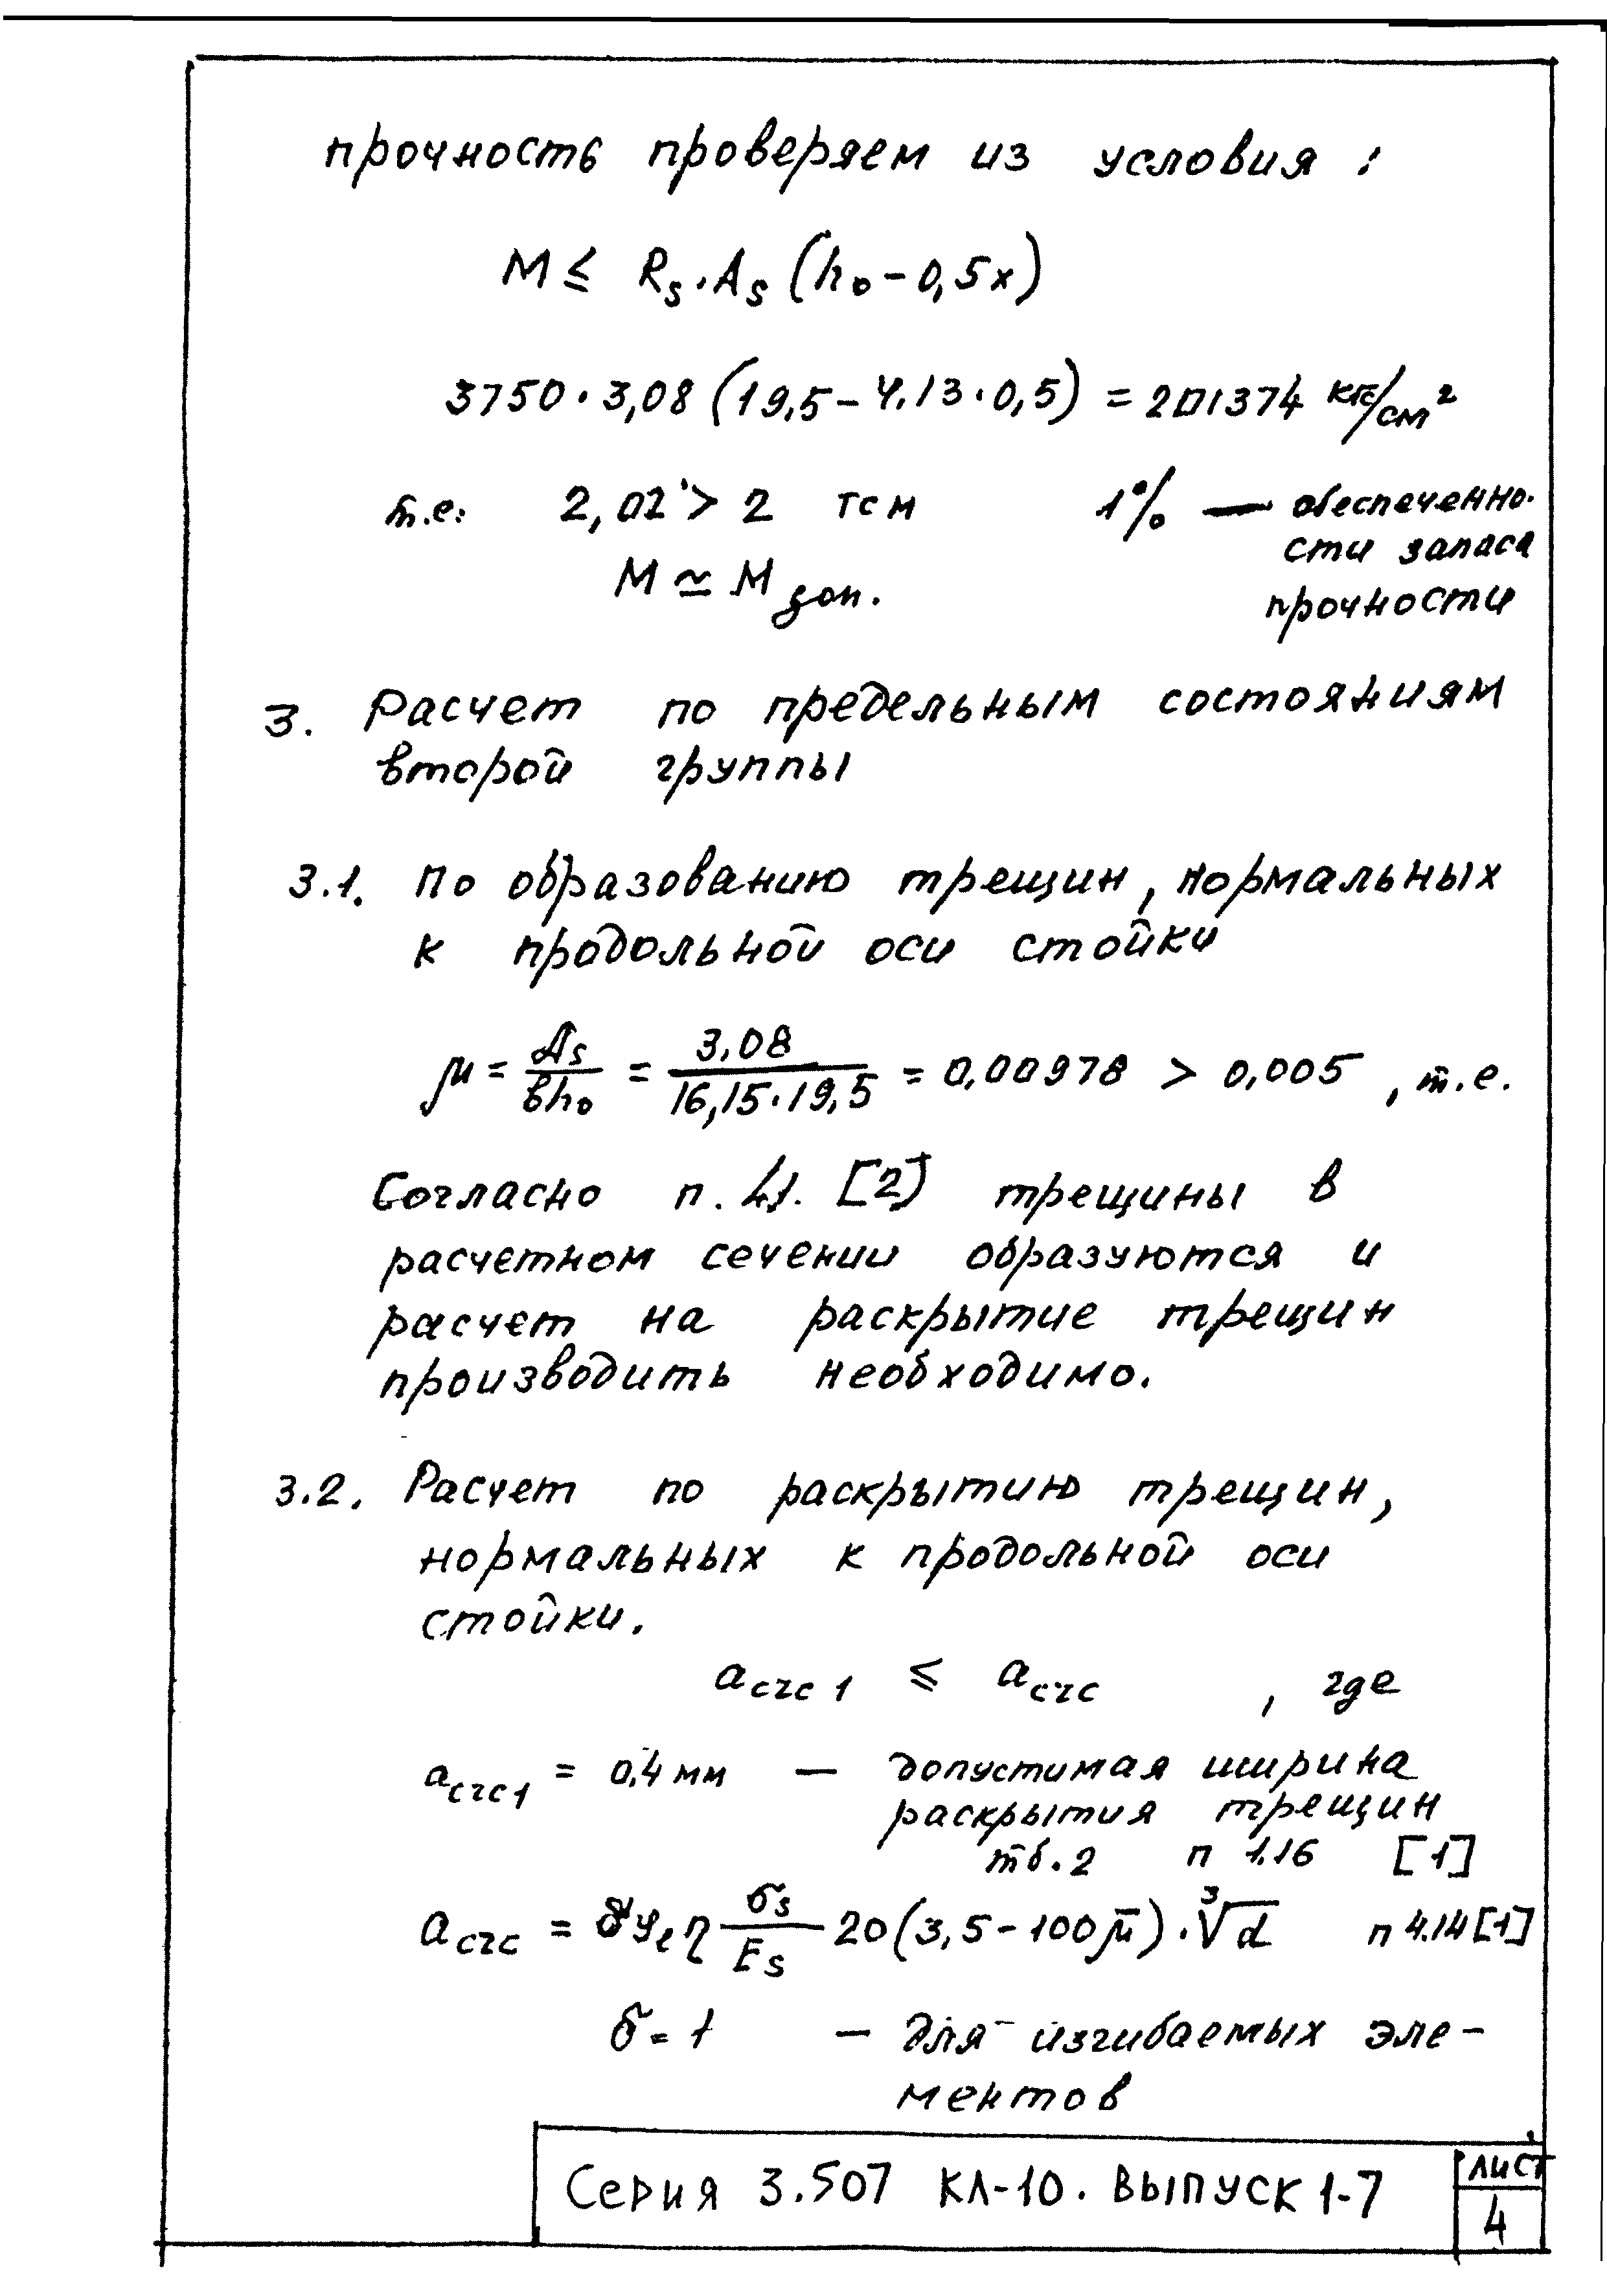 прочность проверяем из условия :
M ≤ Rs·As (ho - 0,5x)
3750 · 3,08 (19,5 - 4.13 · 0,5) = 201374 кгс/см²
т.е: 2,02 > 2 тсм 1% — обеспеченно-
сти запаса
M ≃ M доп. прочности
3. Расчет по предельным состояниям
второй группы
3.1. По образованию трещин, нормальных
к продольной оси стойки
μ = As/bho = 3,08/16,15·19,5 = 0,00978 > 0,005 , т.е.
Согласно п. 4.1. [2] трещины в
расчетном сечении образуются и
расчет на раскрытие трещин
производить необходимо.
3.2. Расчет по раскрытию трещин,
нормальных к продольной оси
стойки.
a crc 1 ≤ a crc , где
a crc1 = 0,4 мм — допустимая ширина
раскрытия трещин
тб. 2 п 1.16 [1]
a crc = δ φℓ η σs/Es 20 (3,5 - 100 μ) · ³√d п 4.14 [1]
δ = 1 — для изгибаемых эле-
ментов
Серия 3.507 КЛ-10. Выпуск 1-7
лист
4